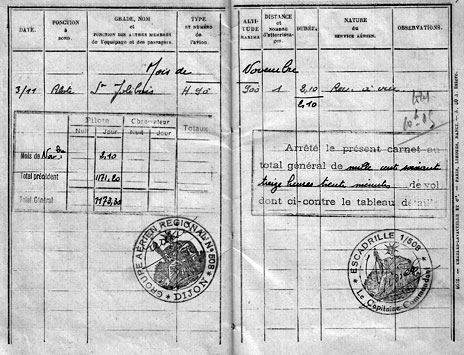 DATE.
FONCTION
à
BORD.
GRADE, NOM
ET
FONCTION DES AUTRES MEMBRES
de l'équipage et des passagers.
TYPE
ET NUMÉRO
de
l'avion.
Mois de
3/11 Pilote H. 90
Pilote
Nuit Jour Nuit Jour Totaux
Mois de Nov.bre 2,10
Total précédent 1171,20
Total Général 1173,30
GROUPE AÉRIEN RÉGIONAL N° 508
DIJON
ALTI-
TUDE
MAXIMA
DISTANCE
et
NOMBRE
d'atterris-
sages.
DURÉE.
NATURE
du
SERVICE AÉRIEN.
OBSERVATIONS.
Novembre
900 1 2,10 à vue
2,10
Arrêté le présent carnet au
total général de mille cent soixante
treize heures trente minutes de vol
dont ci-contre le tableau détaillé
ESCADRILLE 1/508
Le Capitaine Commandant